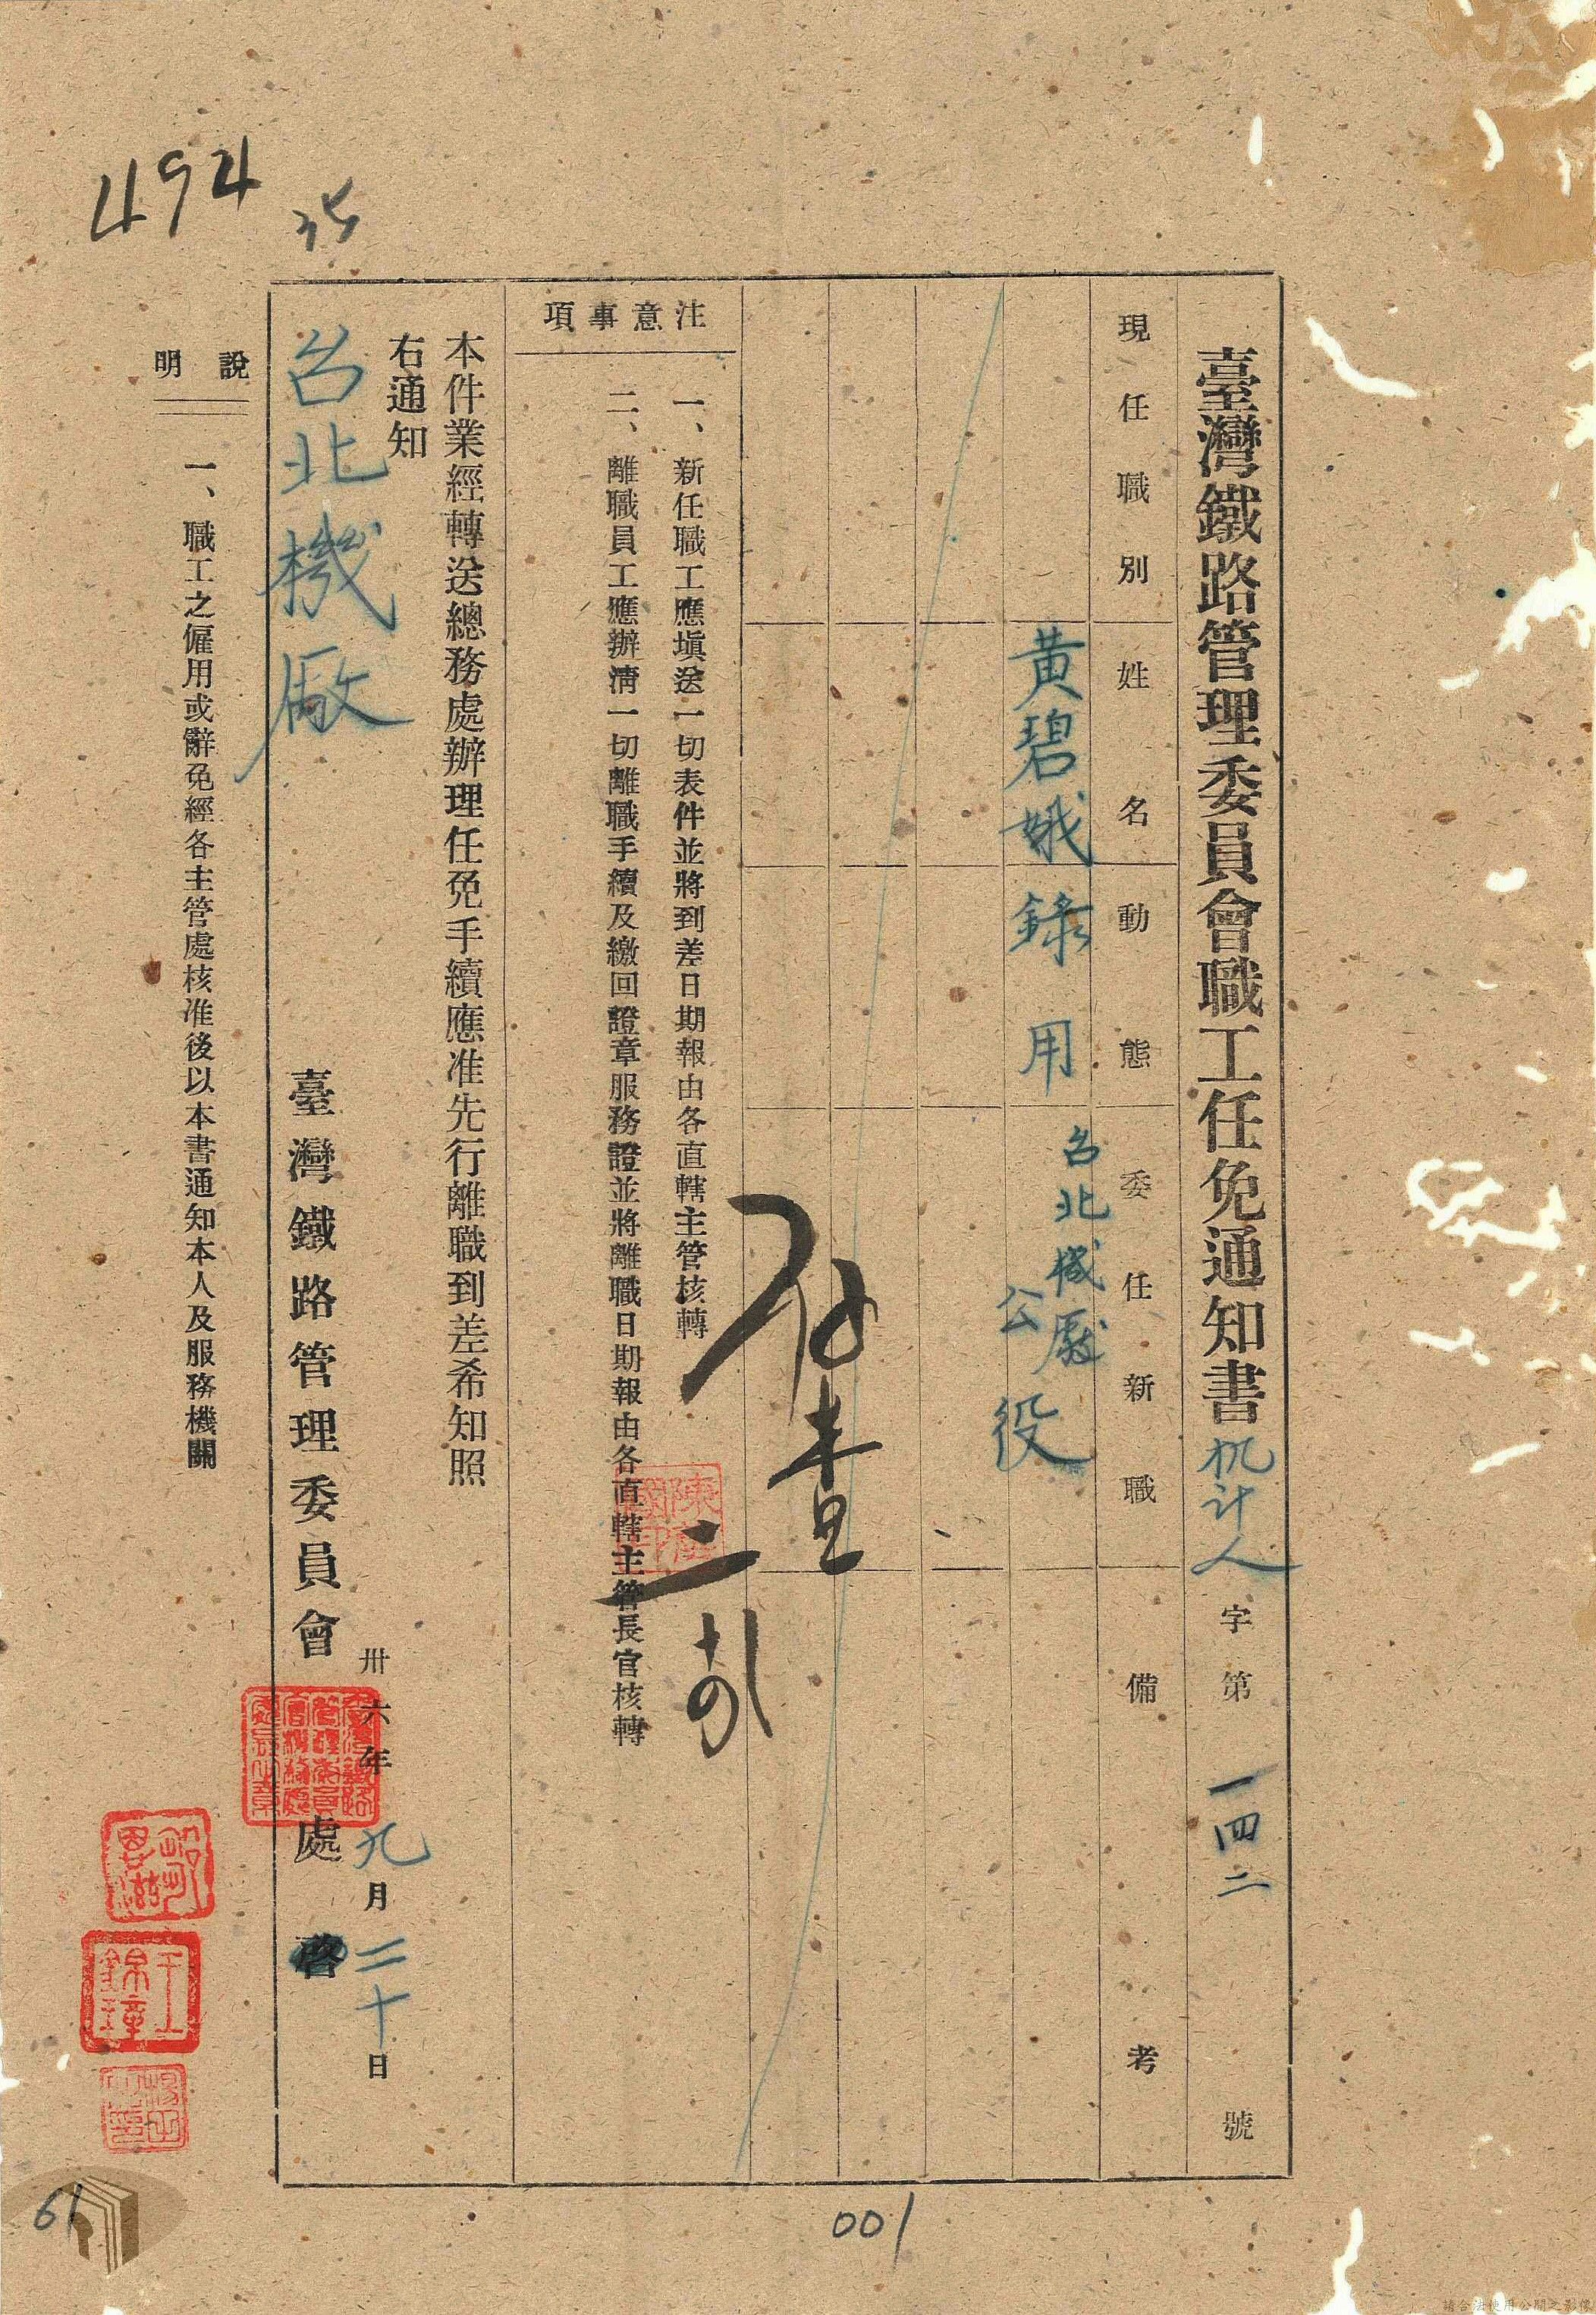 臺灣鐵路管理委員會職工任免通知書 机计人字第一四二號
現任職別 姓名 動態 委任新職 備考
黃碧娥 錄用 台北機廠
公役
注意事項
一、新任職工應塡送一切表件並將到差日期報由各直轄主管核轉
二、離職員工應辦淸一切離職手續及繳回證章服務證並將離職日期報由各直轄主管長官核轉
本件業經轉送總務處辦理任免手續應准先行離職到差希知照
右通知
台北機廠
卅六年九月二十日
臺灣鐵路管理委員會 處 啓
說明
一、職工之僱用或辭免經各主管處核准後以本書通知本人及服務機關
494
35
二
王錦璋
61
001
請合法使用公開之影像